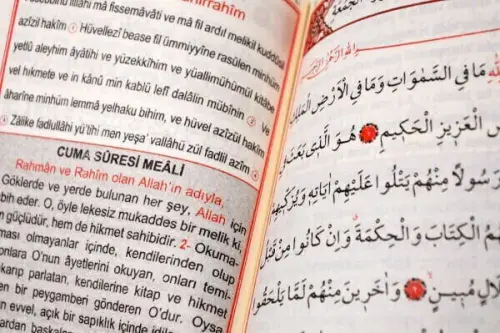 besini lillahi mâ fissemâvâti ve mâ fil ardıl melikil kuddûsil
azîzil hakîm Hüvellezî bease fil ümmiyyîne rasûlen minhüm
yetlû aleyhim âyâtihî ve yüzekkîhim ve yüallimühümül kitâbe
vel hıkmete ve in kânû min kablü lefî dalâlin mübînin 2 Ve
âharîne minhüm lemmâ yelhaku bihim, ve hüvel azîzül hakîm
Zâlike fadlullâhi yü'tîhi men yeşa' vallâhü zül fadlil azîm
CUMA SÛRESİ MEÂLİ
Rahmân ve Rahîm olan Allah'ın adıyla.
Göklerde ve yerde bulunan her şey, Allah için
bih eder. O, öyle lekesiz mukaddes bir melik ki,
güçlüdür, hem de hikmet sahibidir. 2- Okuma-
ması olmayanlar içinde, kendilerinden olup
onlara O'nun âyetlerini okuyan, onları temi-
karıp parlatan, kendilerine kitap ve hikmet
bir peygamberi gönderen O'dur. Oysa
evvel, açık bir sapıklık içinde
الجمعة
بسم الله الرحمن الرحيم
مَا فِي السَّمٰوَاتِ وَمَا فِي الْاَرْضِ الْمَلِكِ
الْعَزِيزِ الْحَكِيمِ ١ هُوَ الَّذِي بَعَثَ
رَسُولًا مِنْهُمْ يَتْلُوا عَلَيْهِمْ اٰيَاتِهِ وَيُزَكِّيهِمْ
الْكِتَابَ وَالْحِكْمَةَ وَاِنْ كَانُوا مِنْ قَبْلُ
ضَلَالٍ مُبِينٍ ٢ وَاٰخَرِينَ مِنْهُمْ لَمَّا يَلْحَقُوا